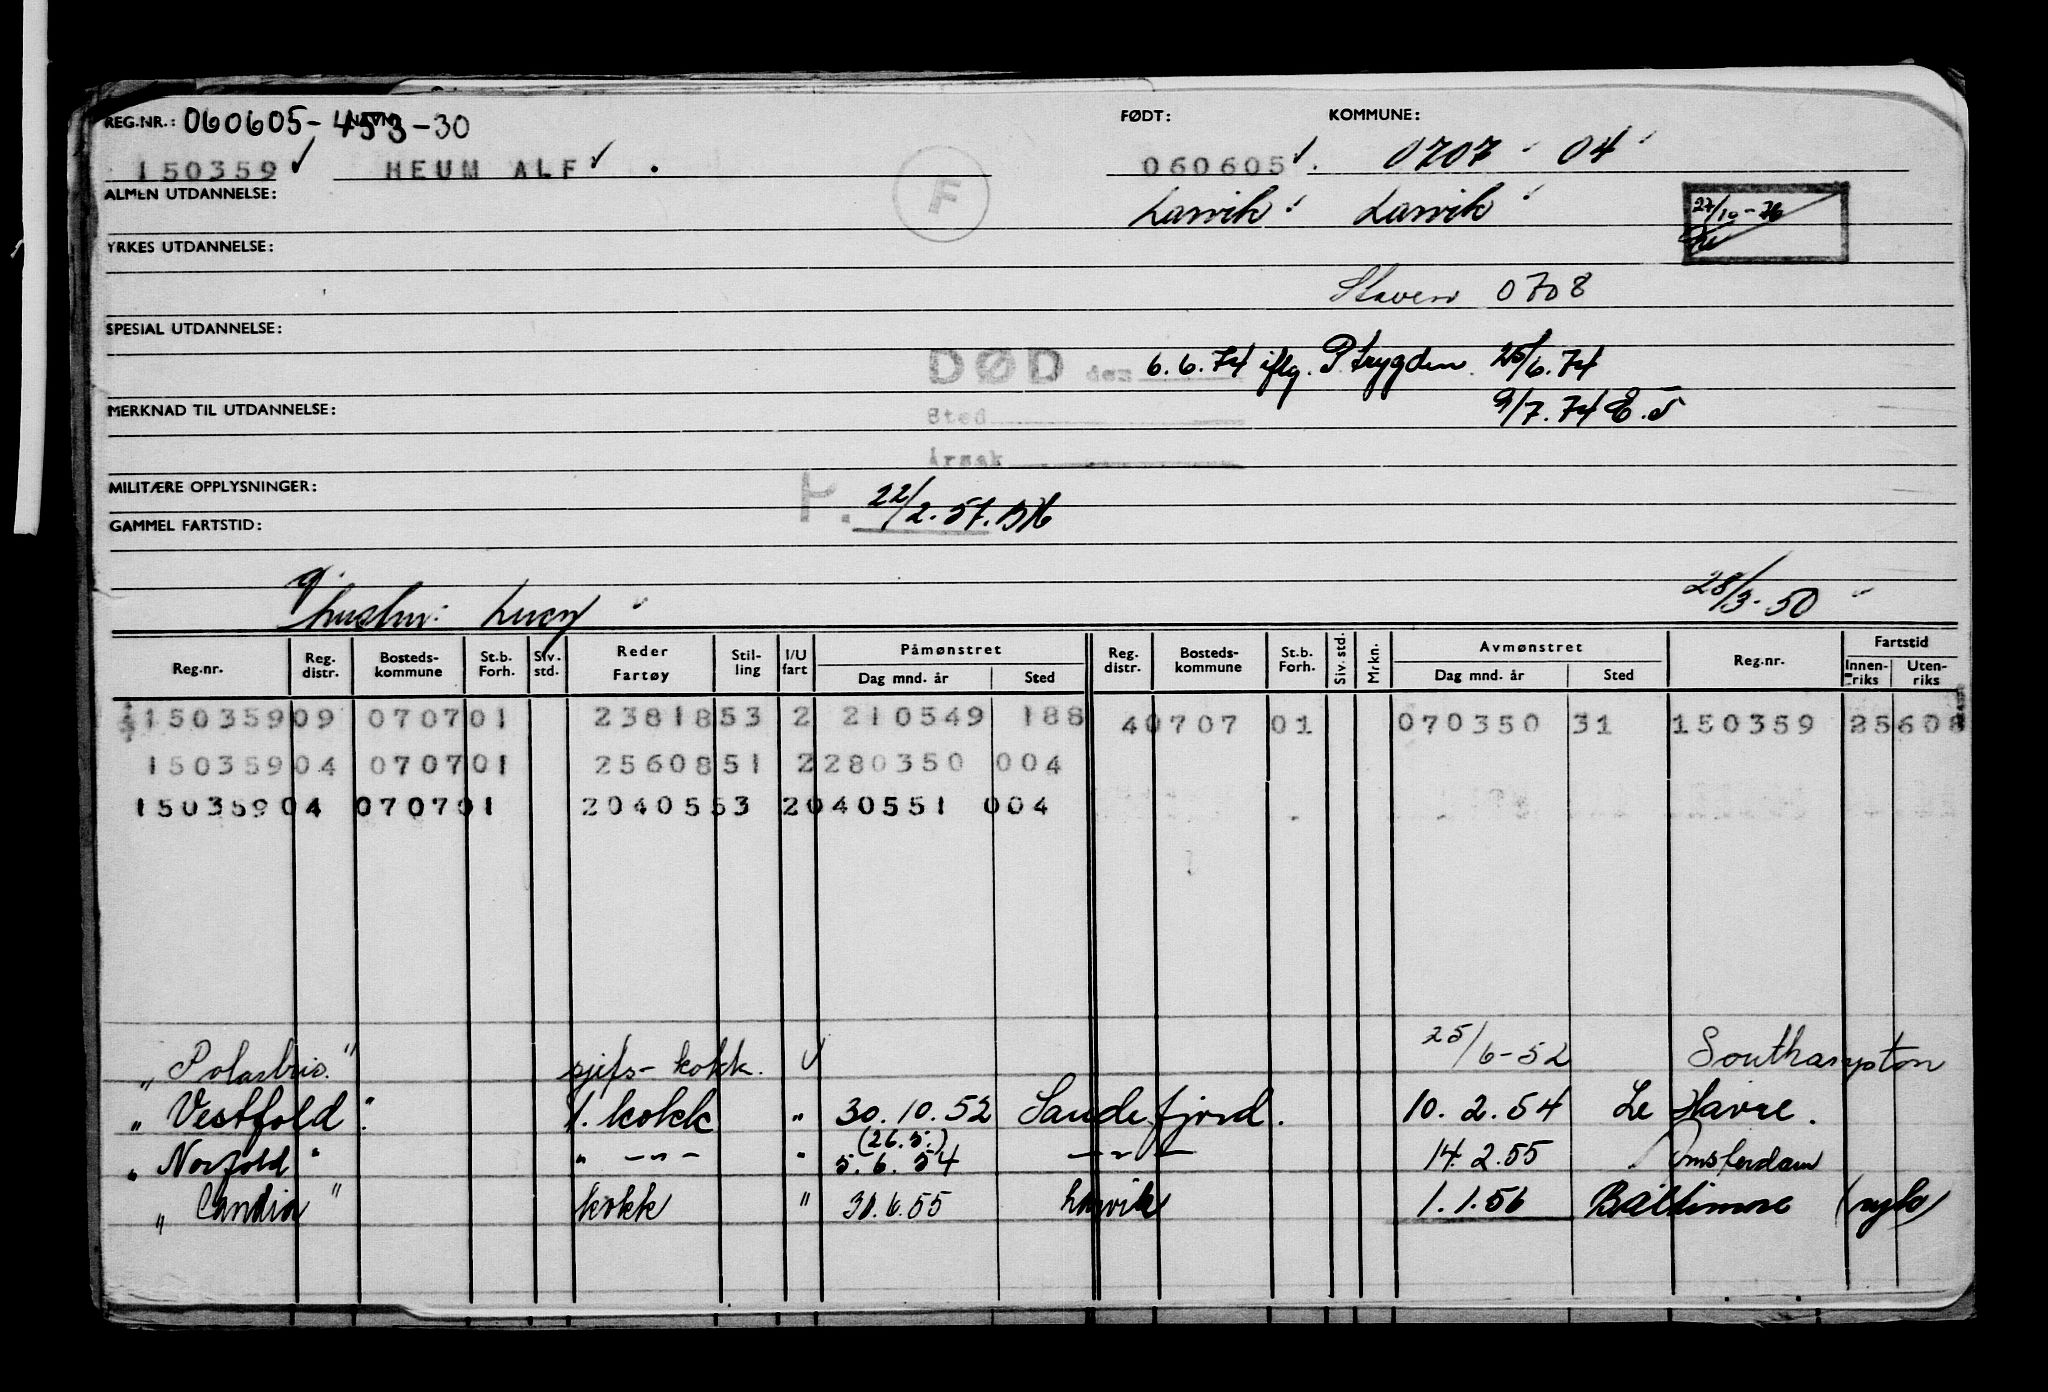 REG.NR.: 060605-453-30 FØDT: KOMMUNE:
150359 ✓ HEUM ALF ✓ . 060605 ✓. 0707 04
ALMEN UTDANNELSE: F Larvik Larvik 27/10-76
YRKES UTDANNELSE:
Staven 0708
SPESIAL UTDANNELSE:
DØD den 6.6.74 iflg. P.trygden 25/6.74
MERKNAD TIL UTDANNELSE: Sted 9/7.74
Årsak
MILITÆRE OPPLYSNINGER:
22/2.57.
GAMMEL FARTSTID:
g.
hustru: Lucy 28/3-50
Reg.nr. Reg. distr. Bosteds- kommune St.b. Forh. Siv. std. Reder Fartøy Stil- ling I/U fart Påmønstret Dag mnd. år Sted Reg. distr. Bosteds- kommune St.b. Forh. Siv. std. Mrkn. Avmønstret Dag mnd. år Sted Reg.nr. Fartstid Innen- riks Uten- riks
150359 09 0707 01 23818 53 2 210549 188 4 0707 01 070350 31 150359 25608
150359 04 0707 01 25608 51 2 280350 004
150359 04 0707 01 20405 53 2 040551 004
„ Polarbris." sjefs-kokk. U 25/6-52 Southampton
„ Vestfold". 1. kokk " 30.10.52 Sandefjord. 10.2.54 Le Havre.
„ Norfold " " --- " (26.5.) 5.6.54 --- 14.2.55 Amsterdam
„ Candia " kokk " 30.6.55 Larvik 1.1.56 Baltimore